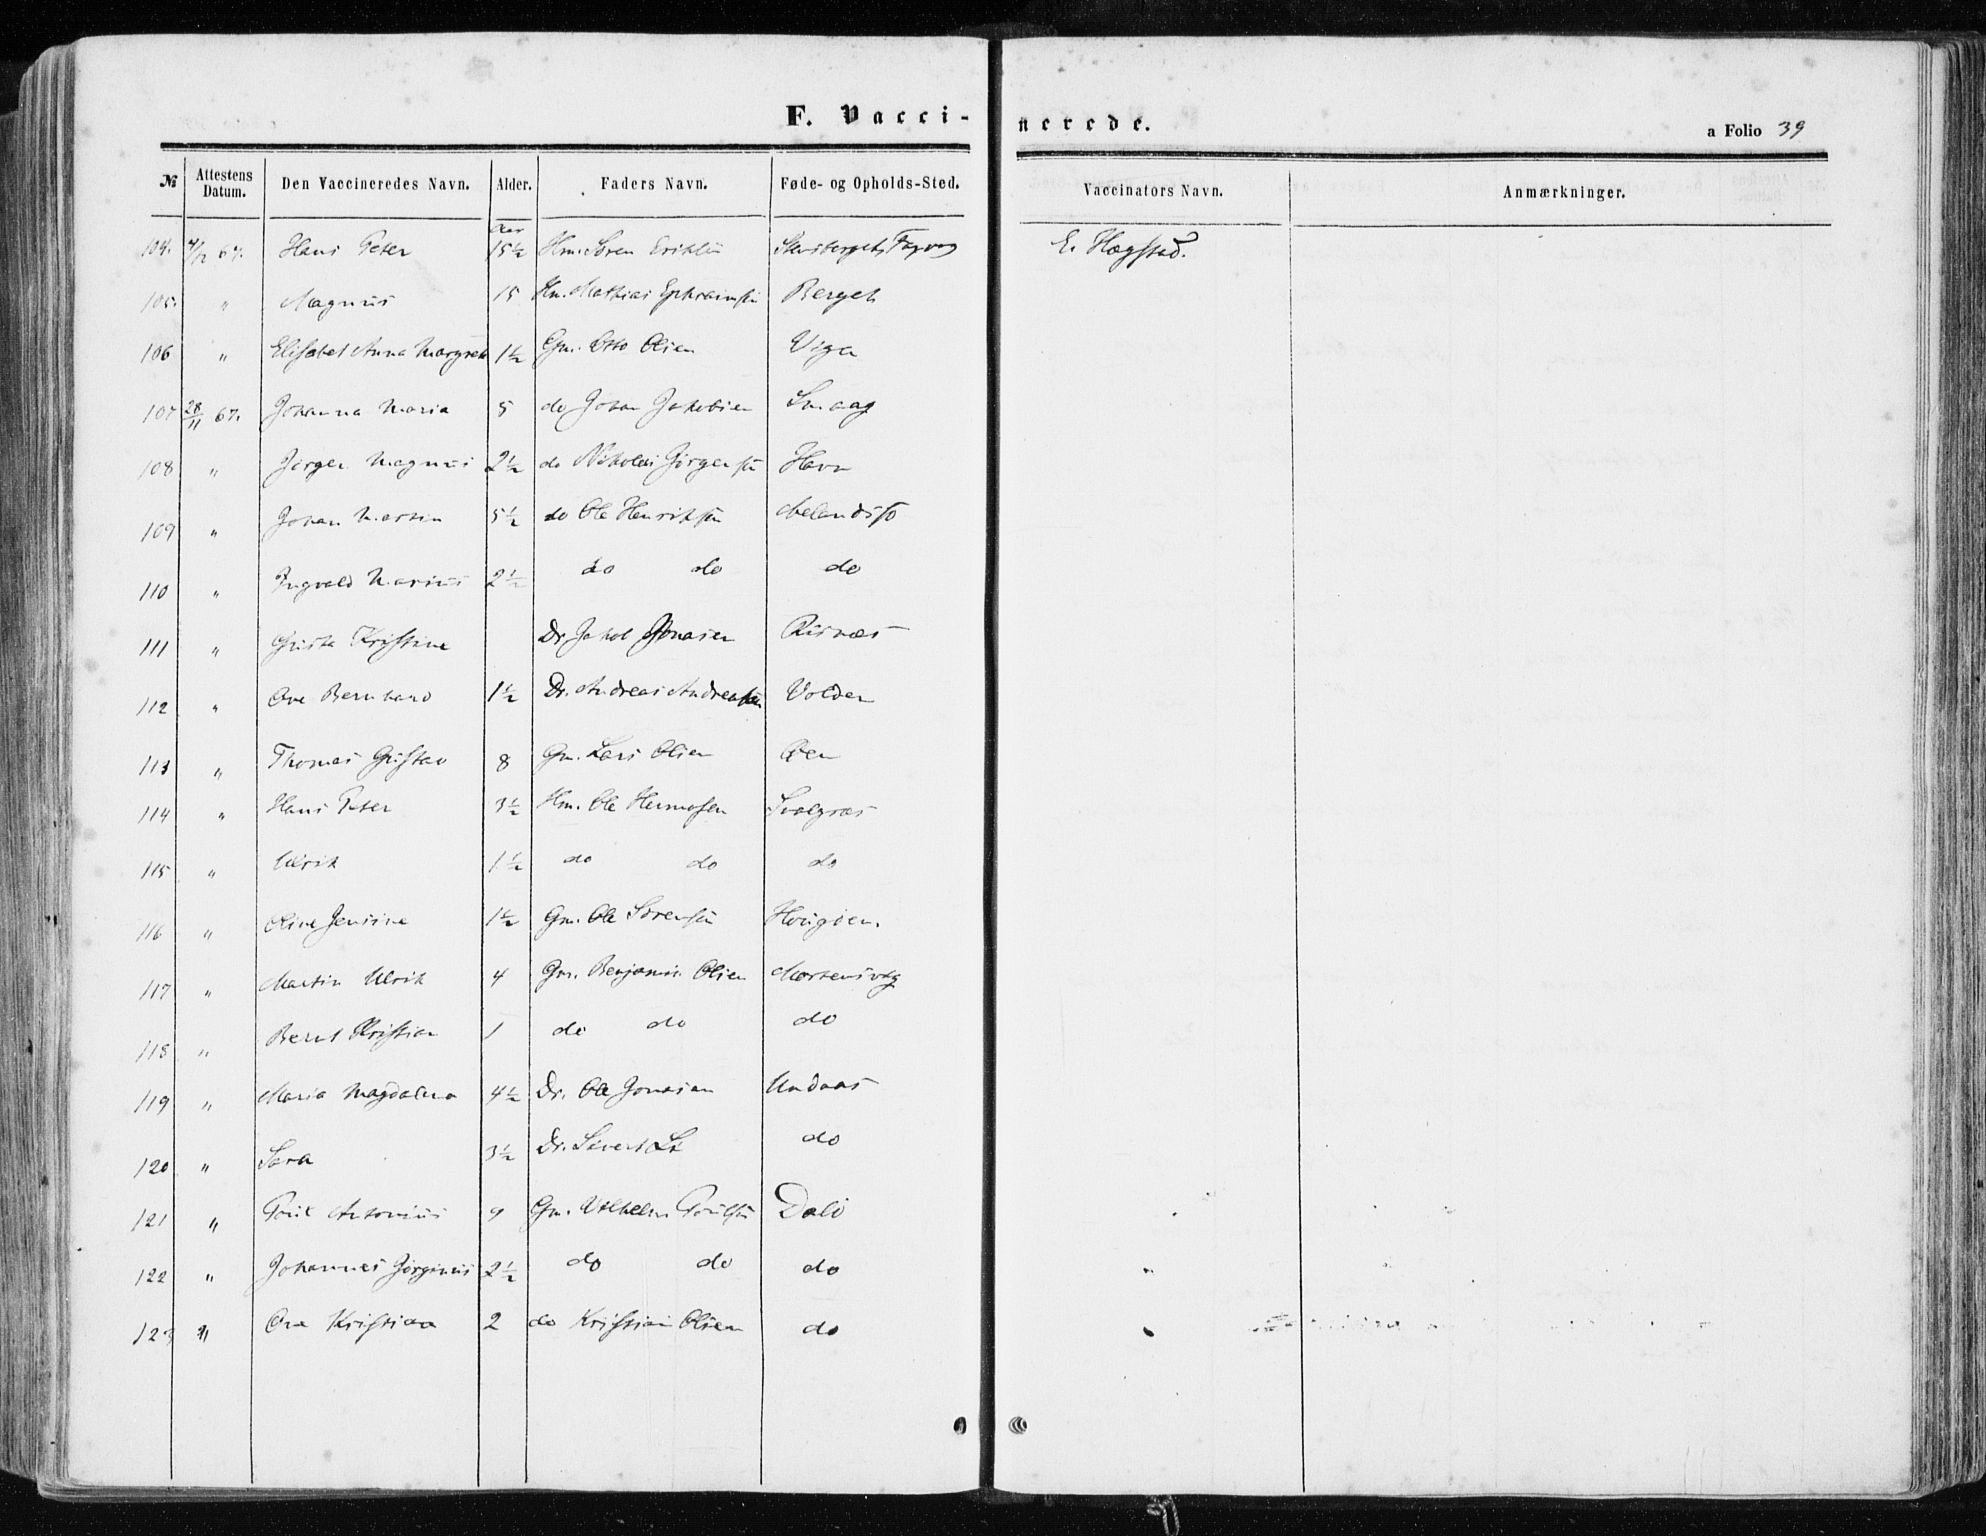 F. Vacci-nerede.
a Folio 39
№ Attestens Datum. Den Vaccineredes Navn. Alder. Faders Navn. Føde- og Opholds-Sted. Vaccinators Navn. Anmærkninger.
Aar
104. 4/12 67. Hans Peter 15½ Hm. Søren E. Hægstad.
105. " Magnus 15 Hm. Mathias Ephraimsen Berget
106 " Elisabet Anna Margret 1½ Gm. Otto Olsen Viga
107 28/11 67. Johanna Maria 5 do Johan Jakobsen Smaag
108 " Jørgen Magnus 2½ do Nikolai Jørgensen Havn
109 " Johan Martin 5½ do Ole Henriksen
110 " Ingvald Marius 2½ do do do
111 " Kristine Dr. Jakob Jonasen Risnæs
112 " Ove Bernhard 1½ Dr. Andreas Andreasen Volden
113 " Thomas Gustav 8 Gm. Lars Olsen Øen
114 " Hans Peter 3½ Hm. Ole
115 " Ulrik 1½ do do do
116 " Oline Jensine 1½ Gm. Ole Sørensen Hougøen.
117 " Martin Ulrik 4 Gm. Benjamin Olsen Mortensvåg
118 " Bernt Kristian 1 do do do
119 " Maria Magdalena 4½ Dr. Ole Jonasen Undaas
120 " Sara 3½ Dr. Sivert do
121 " Poul Antonius 9 Gm. Vilhelm Poulsen Dalø
122 " Johannes Jørginus 2½ do do do
123 " Ove Kristian 2 do Kristian Olsen do